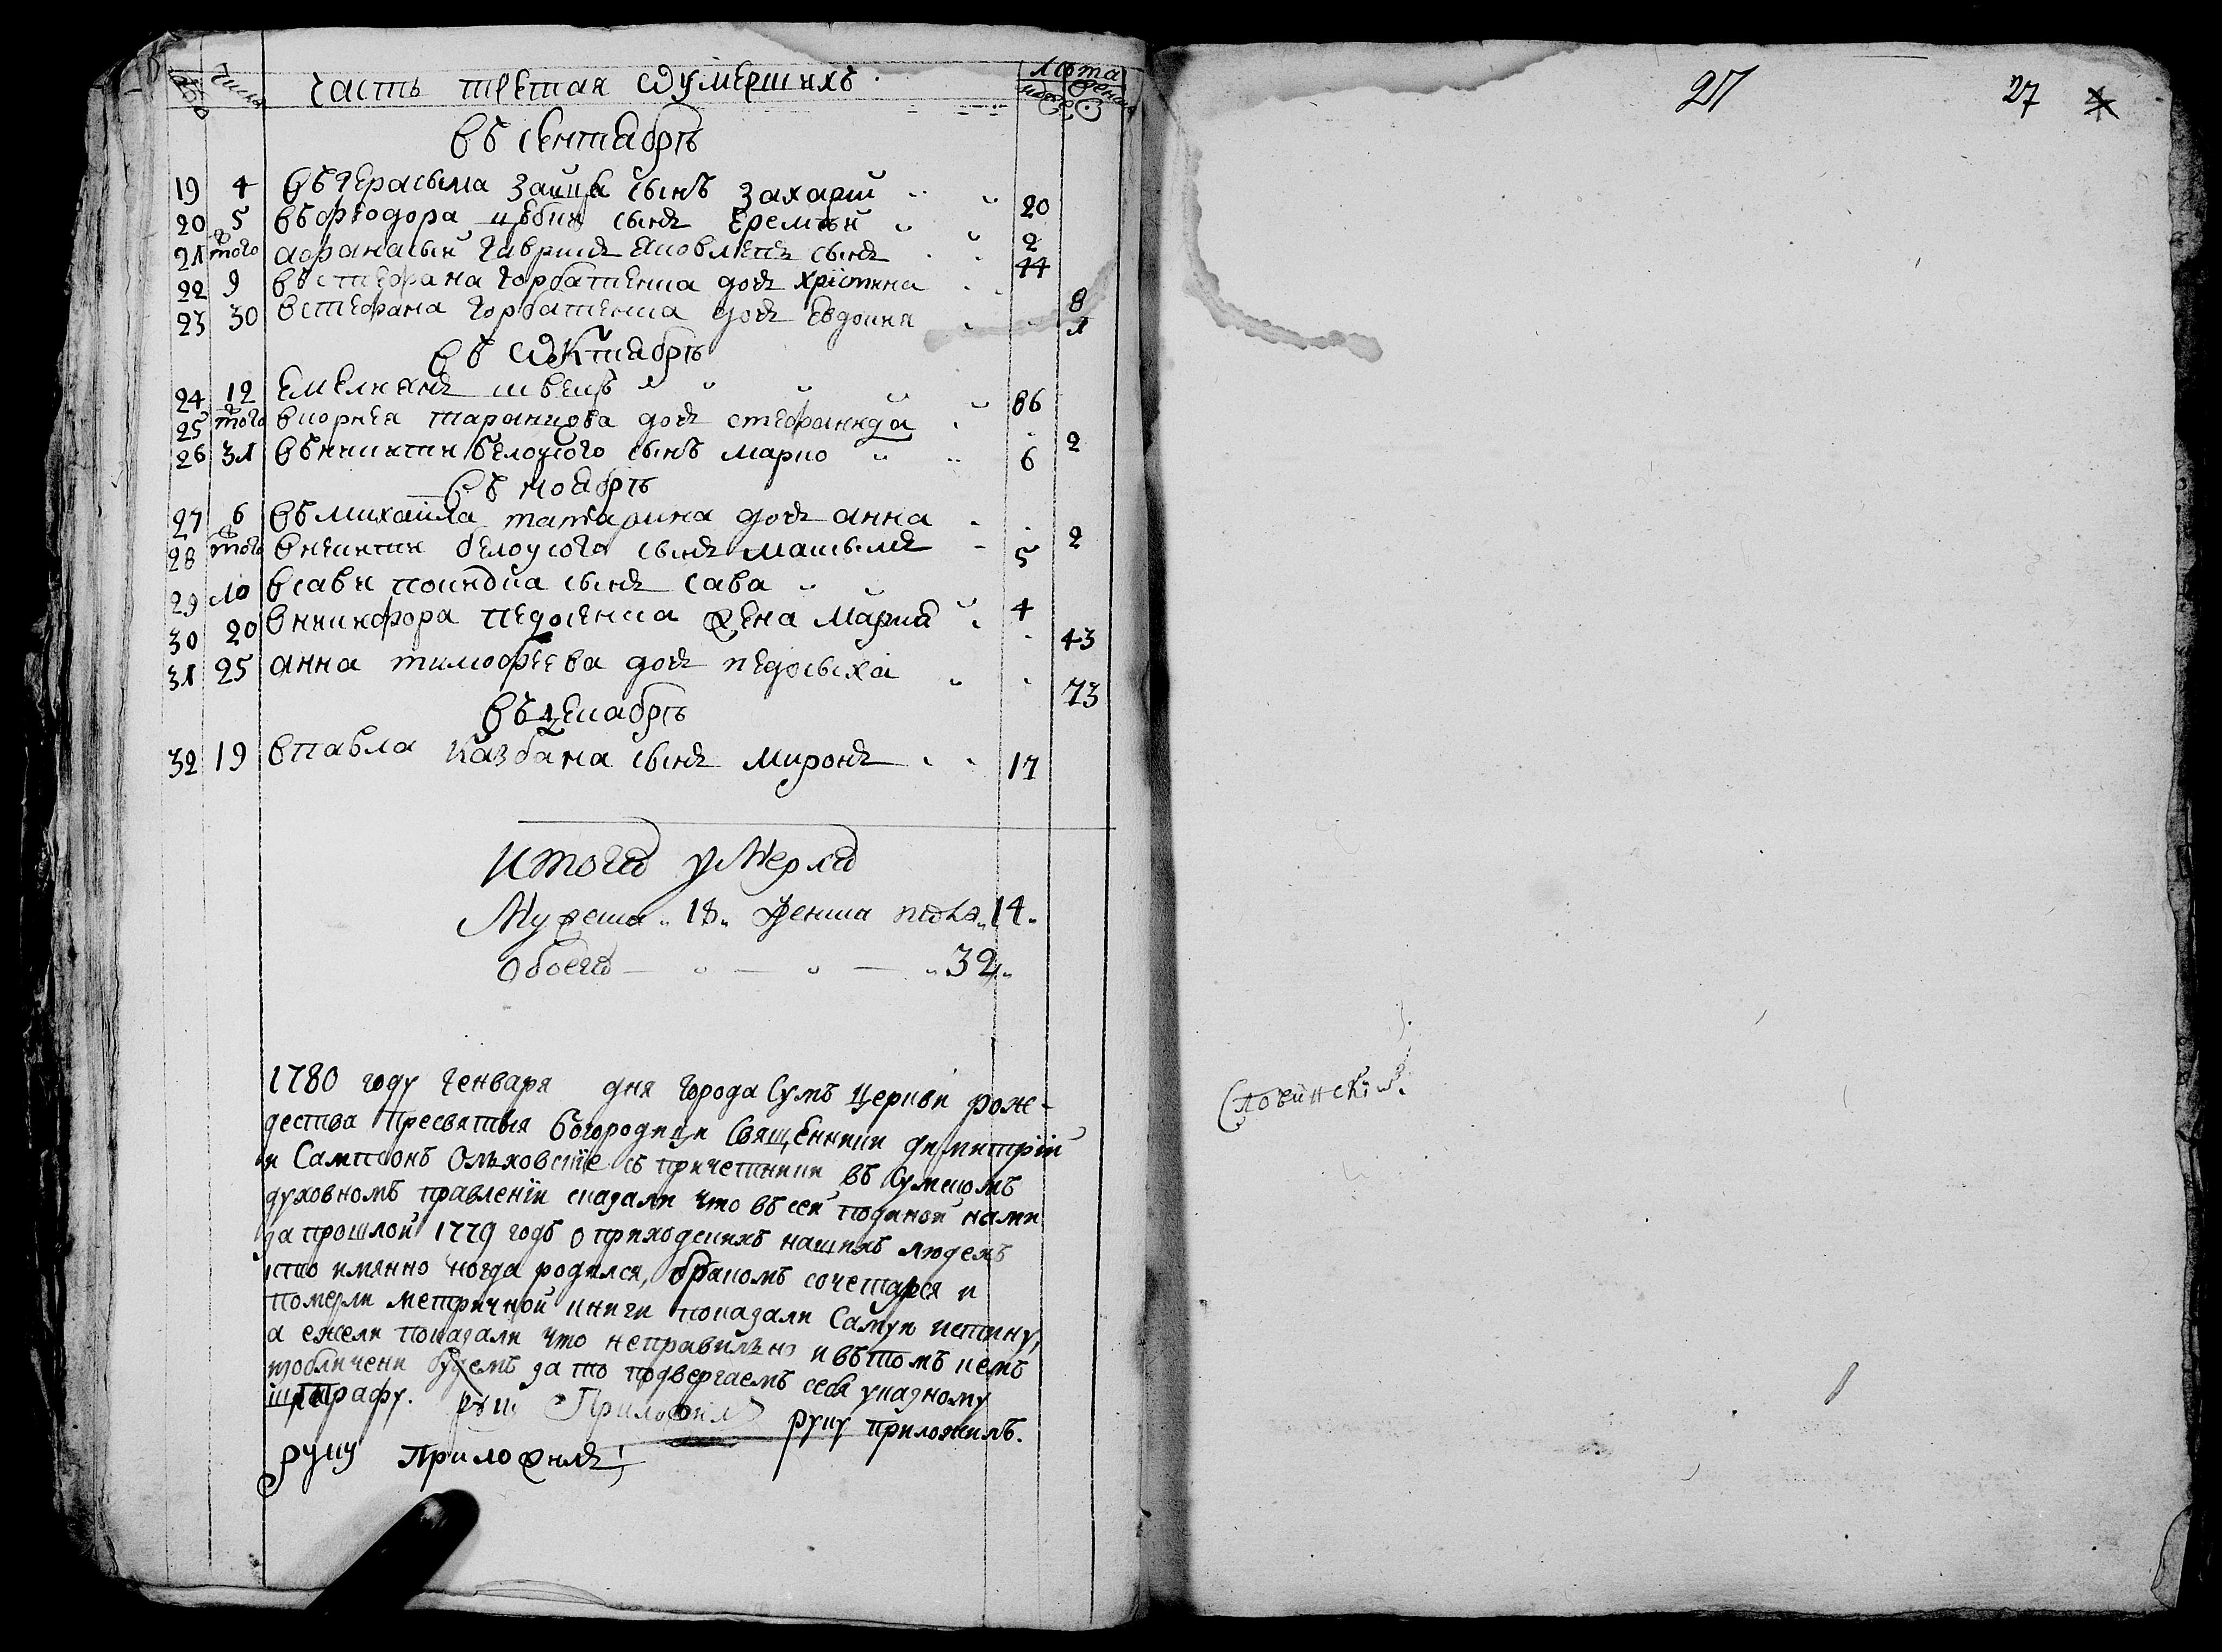 Число часть третая ѡ умершихъ лѣта
въ сентабрѣ
19 4 въ герасыма заица сынъ захарій 20
20 5 въ феодора сынъ еремѣй 2
21 того афанасый гавриш яковлевъ сынъ 44
22 9 въ стефана горбатенка дочь хрїстина 8
23 30 встефана горбатенка дочь евдокия 1
въ ѡктабрѣ
24 12 емелиянъ швецъ 86
25 того вкорнея таранцова дочь стефанида 2
26 31 въ никити белоусого сынъ марко 6
въ ноабрѣ
27 6 въ михаила татарина дочь анна 2
28 того вникити белоусого сынъ мақсымъ 5
29 10 всави сынъ сава 4
30 20 вникифора педосенка жена мариа 43
31 25 анна тимофеева дочь педосыха 73
въ декабрѣ
32 19 впавла казбана сынъ миронъ 17
итого умерло
Мужеска 18 женска пола 14
Обоего 32
1780 году генваря дня города Сумъ церкви рож-
дества пресвятыя богородици священники димитрїй
и Сампсонъ Ольховскїе съ причетники въ Сумскомъ
духовномъ правленїи сказали что въ сей поданой нами
за прошлой 1779 годъ о приходскихъ нашихъ людехъ
кто имянно когда родился, бракомъ сочетался и
померли метричной книги показали самую истину,
а ежели показали что неправильно и въ томъ кемъ
изобличени будемъ за то подвергаемъ себя указному
штрафу. Приложилъ руку приложилъ.
руку приложилъ
27 27